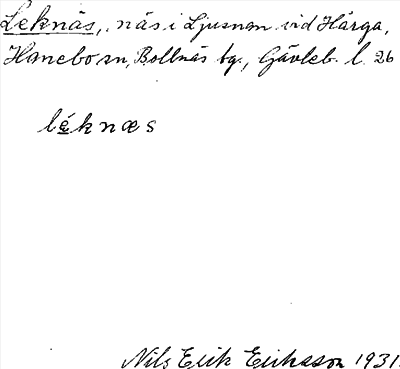 Leknäs, näs i Ljusnan vid Hårga,
Hanebo sn, Bollnäs tg., Gävleb. l. 26
léknæs
Nils Erik Eriksson 1931.